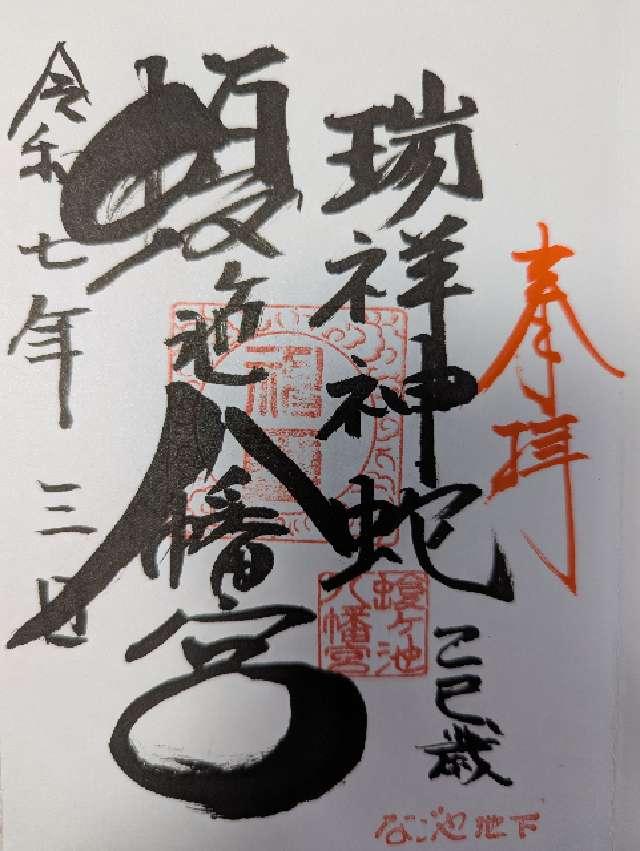 奉拝
瑞祥神蛇
乙巳歳
蝮ヶ池八幡宮
蝮ヶ池
八幡宮
令和七年 三 日